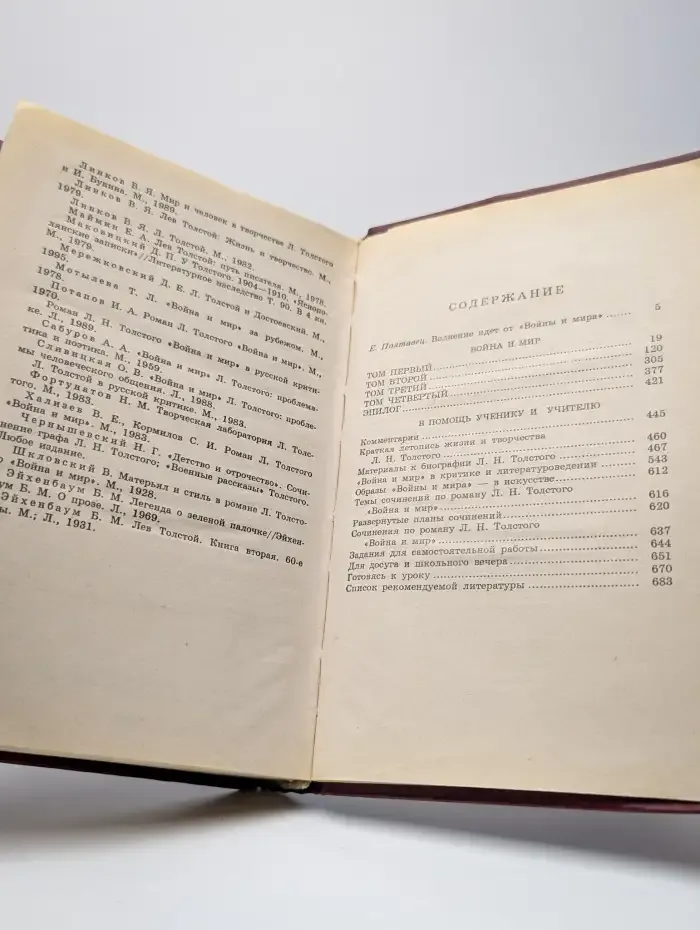 Линков В. Я. Мир и человек в творчестве Л. Толстого
и И. Бунина. М., 1989.
Линков В. Я. Лев Толстой: Жизнь и творчество. М.,
1979.
Линков В. Я. Л. Толстой. М., 1982.
Маймин Е. А. Лев Толстой: путь писателя. М., 1978.
Маковицкий Д. П. У Толстого. 1904—1910. «Яснопо-
лянские записки»//Литературное наследство Т. 90. В 4 кн.
М., 1979.
Мережковский Д. Е. Л. Толстой и Достоевский. М.,
1995.
Мотылева Т. Л. «Война и мир» за рубежом. М.,
1978.
Потапов И. А. Роман Л. Толстого «Война и мир». М.,
1970.
Роман Л. Н. Толстого «Война и мир» в русской крити-
ке. Л., 1989.
Сабуров А. А. «Война и мир» Л. Толстого: проблема-
тика и поэтика. М., 1959.
Сливицкая О. В. «Война и мир» Л. Толстого: пробле-
мы человеческого общения. Л., 1988.
Л. Толстой в русской критике. М., 1983.
Фортунатов Н. М. Творческая лаборатория Л. Толс-
того. М., 1983.
Хализев В. Е., Кормилов С. И. Роман Л. Толстого
«Война и мир». М., 1983.
Чернышевский Н. Г. «Детство и отрочество». Сочи-
нение графа Л. Н. Толстого; «Военные рассказы» Толстого.
Любое издание.
Шкловский В. Матерьял и стиль в романе Л. Толсто-
о «Война и мир». М., 1928.
Эйхенбаум Б. М. Легенда о зеленой палочке//Эйхен-
аум Б. М. О прозе. Л., 1969.
Эйхенбаум Б. М. Лев Толстой. Книга вторая. 60-е
ы. М.; Л., 1931.
СОДЕРЖАНИЕ
Е. Полтавец. Волнение идет от «Войны и мира» ...... 5
ВОЙНА И МИР
ТОМ ПЕРВЫЙ ...... 19
ТОМ ВТОРОЙ ...... 120
ТОМ ТРЕТИЙ ...... 305
ТОМ ЧЕТВЕРТЫЙ ...... 377
ЭПИЛОГ ...... 421
В ПОМОЩЬ УЧЕНИКУ И УЧИТЕЛЮ
Комментарии ...... 445
Краткая летопись жизни и творчества
Л. Н. Толстого ...... 460
Материалы к биографии Л. Н. Толстого ...... 467
«Война и мир» в критике и литературоведении ...... 543
Образы «Войны и мира» — в искусстве ...... 612
Темы сочинений по роману Л. Н. Толстого
«Война и мир» ...... 616
Развернутые планы сочинений ...... 620
Сочинения по роману Л. Н. Толстого
«Война и мир» ...... 637
Задания для самостоятельной работы ...... 644
Для досуга и школьного вечера ...... 651
Готовясь к уроку ...... 670
Список рекомендуемой литературы ...... 683